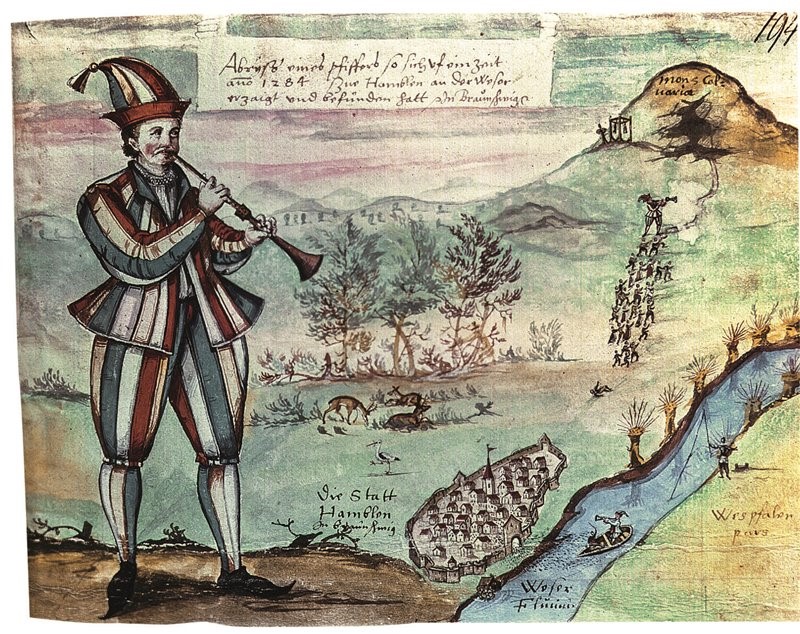 194
Abryss eines pfiffers so sich vf ein Zeit
ano 1284 Zue Hamblen an der Weser
erzaigt und befunden hatt in Braunshwig
mons Cal-
variæ
Die Statt
Hamblen
in braunshwig
Weser
Fluuius
Wespfalen
pars